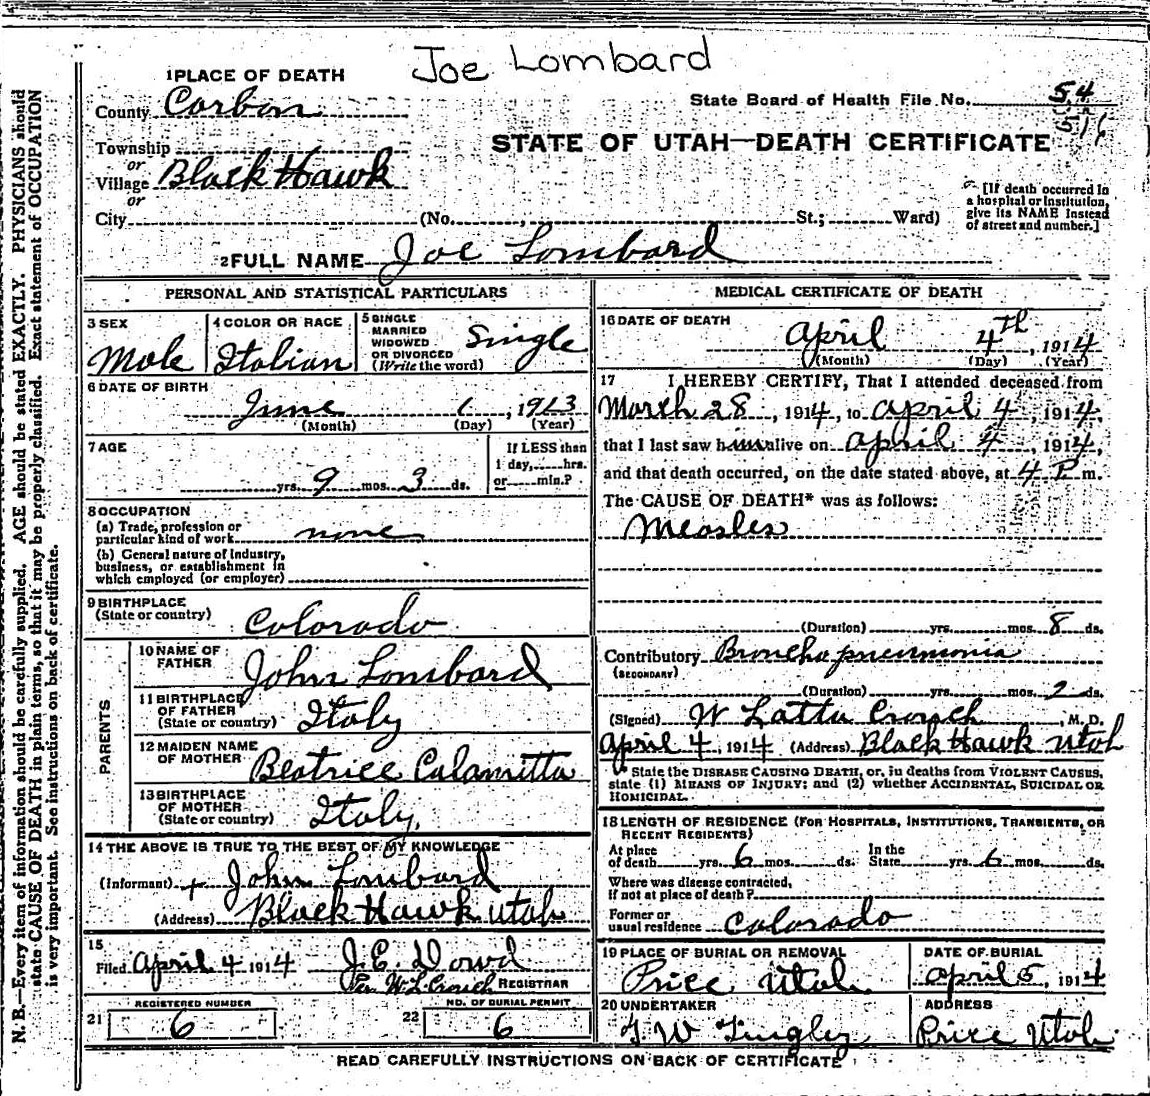 Joe Lombard
1 PLACE OF DEATH
County Carbon
State Board of Health File No. 54
Township
or
Village Black Hawk
or
STATE OF UTAH—DEATH CERTIFICATE
City (No. , St.; Ward)
[If death occurred in
a hospital or institution,
give its NAME instead
of street and number.]
2 FULL NAME Joe Lombard
PERSONAL AND STATISTICAL PARTICULARS
3 SEX
Male
4 COLOR OR RACE
Italian
5 SINGLE
MARRIED
WIDOWED
OR DIVORCED
(Write the word)
Single
6 DATE OF BIRTH
June 1, 1913
(Month) (Day) (Year)
7 AGE
yrs. 9 mos. 3 ds.
If LESS than
1 day, hrs.
or min.?
8 OCCUPATION
(a) Trade, profession or
particular kind of work none
(b) General nature of industry,
business, or establishment in
which employed (or employer)
9 BIRTHPLACE
(State or country) Colorado
PARENTS
10 NAME OF
FATHER John Lombard
11 BIRTHPLACE
OF FATHER
(State or country) Italy
12 MAIDEN NAME
OF MOTHER Beatrice Calamitta
13 BIRTHPLACE
OF MOTHER
(State or country) Italy.
14 THE ABOVE IS TRUE TO THE BEST OF MY KNOWLEDGE
(Informant) + John Lombard
(Address) Black Hawk Utah
15
Filed April 4 1914 J.E. Dowd
Per W.L. Crouch REGISTRAR
REGISTERED NUMBER
21 6
NO. OF BURIAL PERMIT
22 6
MEDICAL CERTIFICATE OF DEATH
16 DATE OF DEATH
April 4th, 1914
(Month) (Day) (Year)
17 I HEREBY CERTIFY, That I attended deceased from
March 28, 1914, to April 4, 1914,
that I last saw him alive on April 4, 1914,
and that death occurred, on the date stated above, at 4 P m.
The CAUSE OF DEATH* was as follows:
Measles
(Duration) yrs. mos. 8 ds.
Contributory Broncho pneumonia
(SECONDARY)
(Duration) yrs. mos. 2 ds.
(Signed) W Latta Crouch, M. D.
April 4, 1914 (Address) Black Hawk Utah
* State the DISEASE CAUSING DEATH, or, in deaths from VIOLENT CAUSES,
state (1) MEANS OF INJURY; and (2) whether ACCIDENTAL, SUICIDAL OR
HOMICIDAL.
18 LENGTH OF RESIDENCE (FOR HOSPITALS, INSTITUTIONS, TRANSIENTS, OR
RECENT RESIDENTS)
At place
of death yrs. 6 mos. ds.
In the
State yrs. 6 mos. ds.
Where was disease contracted,
if not at place of death?
Former or
usual residence Colorado
19 PLACE OF BURIAL OR REMOVAL
Price Utah.
DATE OF BURIAL
April 5, 1914
20 UNDERTAKER
ADDRESS
Price Utah.
READ CAREFULLY INSTRUCTIONS ON BACK OF CERTIFICATE
N. B.—Every item of information should be carefully supplied. AGE should be stated EXACTLY. PHYSICIANS should
state CAUSE OF DEATH in plain terms, so that it may be properly classified. Exact statement of OCCUPATION
is very important. See instructions on back of certificate.